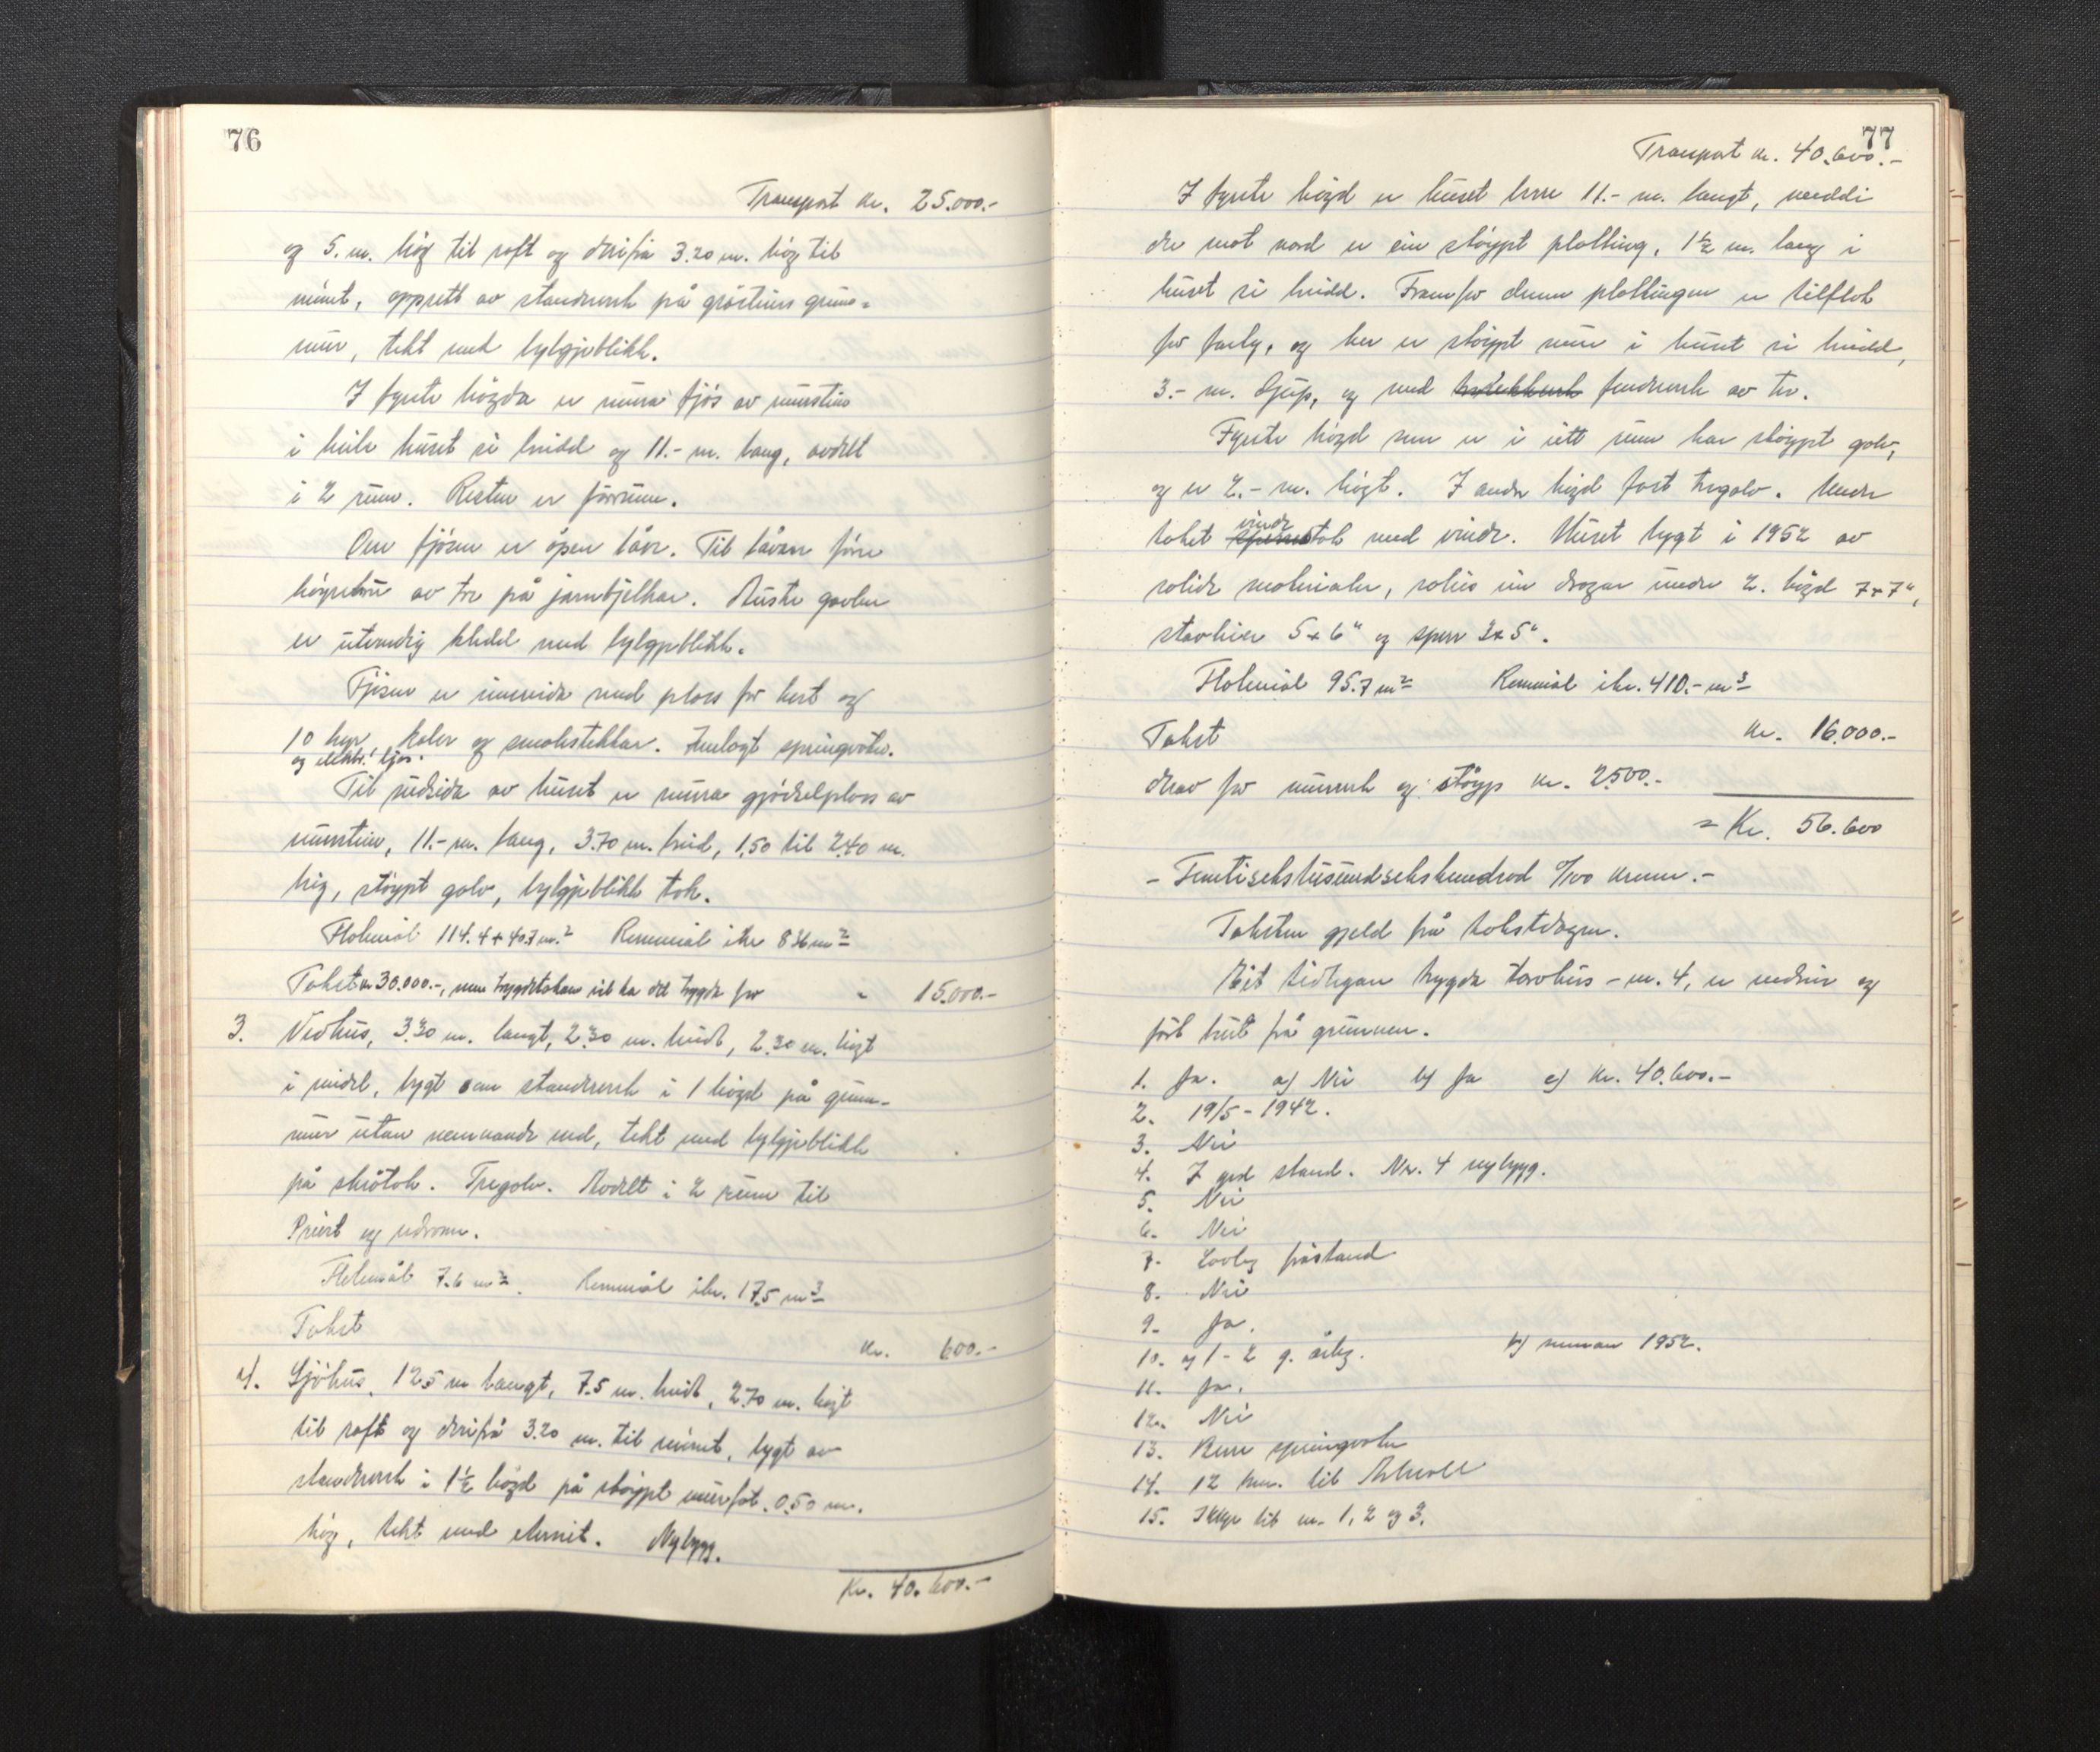 76
Transport kr. 25.000.-
og 5. m. høg til raft og derifrå 3.20 m. høg til
mønet, oppsett av standverk på gråsteins grunn=
mur, tekt med bylgjeblikk.
I fyrste høgda er mura fjøs av murstein
i heile huset si breidd og 11.- m. lang, avdelt
i 2 rum. Resten er fôrrum.
Over fjøsen er open låve. Til låven fører
høgebru av tre på jarnbjelkar. Austre gavlen
er utvendig kledd med bylgjeblikk.
Fjøsen er innreidd med plass for hest og
10 kyr, kalvar og småstellar. Innlagt springvatn.
og elektr. ljos.
Til nedsida av huset er mura gjødselplass av
murstein, 11.- m. lang, 3.70 m. breid, 1,50 til 2,40 m.
høg, støypt golv, bylgjeblikk tak.
Flatemål 114.4 + 40.7 m.² Rommål ikr 836 m²
Takst kr 30.000.-, men trygdetakar vil ha det trygda for " 15.000.-
3. Vedhus, 3.30 m. langt, 2.30 m. breidt, 2.30 m. høgt
i middel, bygt som standverk i 1 høgd på grunn-
mur utan nemnande verd, tekt med bylgjeblikk
på skråtak. Tregolv. Avdelt i 2 rum til
Privet og vedrom.
Flatemål 7.6 m². Rommål ikr. 17.5 m³
Takst kr. 600.-
4. Sjøhus, 12.5 m langt, 7.5 m. breidt, 2.70 m. høgt
til raft og derifrå 3.20 m. til mønet, bygt av
standverk i 1½ høgd på støypt murfot 0.50 m.
høg, tekt med eternit. Nybygg.
Kr. 40.600.-
77
Transport kr. 40.600.-
I fyrste høgd er huset berre 11.- m. langt, medd
der mot nord er ein støypt platting, 1½ m. lang i
huset si breidd. Framfor denne plattingen er tilflot
for farty, og her er støypt mur i huset si breidd,
3.- m. djup, og med fenderverk av tre.
Fyrste høgd som er i eitt rum har støypt golv,
og er 2.- m. høgt. I andre høgd fast tregolv. Under
taket vindetak med vinde. Huset bygt i 1952 av
solide materialer, soleis im dragar under 2. høgd 7 x 7",
stavlier 5 x 6" og sperr 3 x 5".
Flatemål 95.7 m² Rommål ikr. 410.- m³
Takst kr. 16.000.-
Herav for murverk og støyp kr. 2500.-
= Kr. 56.600
- Femtisekstusundsekshundrad 0/100 kroner.-
Taksten gjeld frå takstdagen.
Eit tidlegare trygda torvhus - nr. 4, er nedrive og
ført burt frå grunnen.
1. Ja. a) Nei b) Ja c) Kr. 40.600.-
2. 19/5 - 1942.
3. Nei
4. I god stand. Nr. 4 nybygg.
5. Nei
6. Nei
7. Lovleg fråstand
8. Nei
9. Ja.
10. a) 1 - 2 g. årleg. b) sumaren 1952.
11. Ja.
12. Nei
13. Berre springvatn
14. 12 km. til
15. Ikkje til nr. 1, 2 og 3.